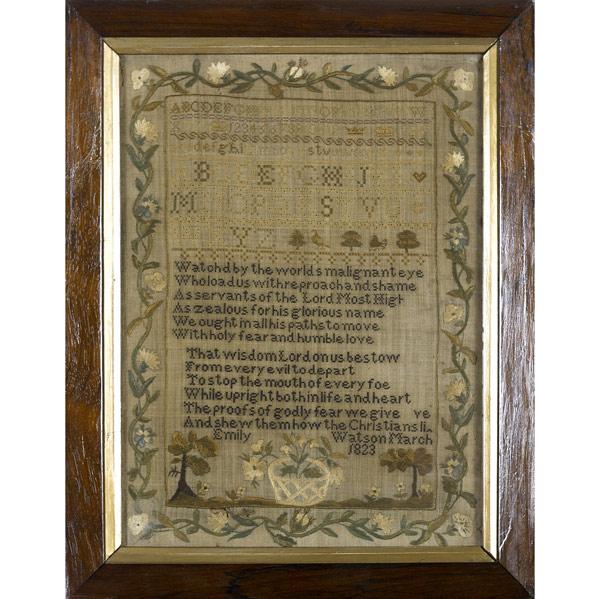 ABCDEFG W
234567
defghi stu
B E G H J
M P S V
Y
Watchd by the worlds malignant eye
Who load us with reproach and shame
As servants of the Lord Most High
As zealous for his glorious name
We ought in all his paths to move
With holy fear and humble love
That wisdom Lord on us bestow
From every evil to depart
To stop the mouth of every foe
While upright both in life and heart
The proofs of godly fear we give ve
And shew them how the Christians li
Emily Watson March
1823